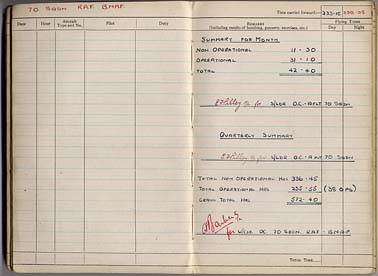 70 SQDN RAF BMAF
Time carried forward:— 233-15 339-25
Date
Hour
Aircraft
Type and No.
Pilot
Duty
REMARKS
(including results of bombing, gunnery, exercises, etc.)
Flying Times
Day
Night
SUMMARY FOR MONTH
NON OPERATIONAL 11 - 30
OPERATIONAL 31 - 10
TOTAL 42 - 40
for S/LDR O.C. A FLT 70 SQDN
QUARTERLY SUMMARY
for S/LDR O.C. A FLT 70 SQDN
TOTAL NON OPERATIONAL HRS 336-45
TOTAL OPERATIONAL HRS 235-55 (38 OPS)
GRAND TOTAL HRS 572-40
for W/CDR OC 70 SQDN. RAF. BMAF
TOTAL TIME